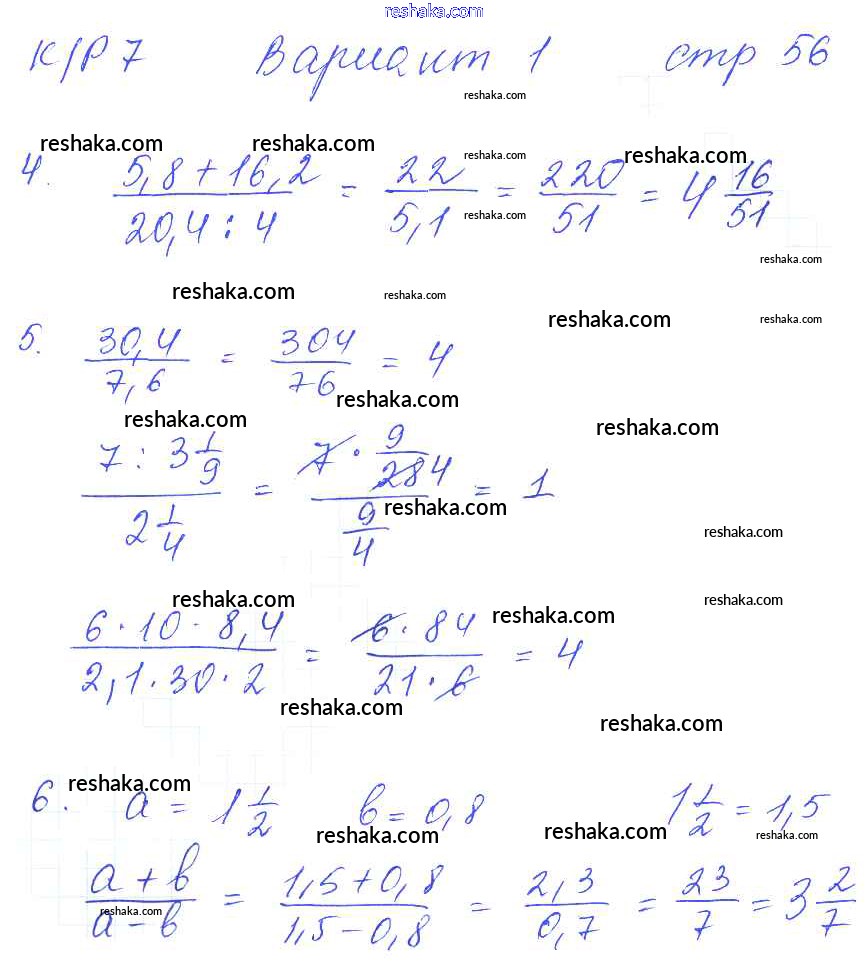 reshaka.com
К/Р 7 Вариант 1 стр 56
reshaka.com
reshaka.com reshaka.com reshaka.com reshaka.com
4. (5,8 + 16,2)/(20,4 : 4) = 22/5,1 = 220/51 = 4 16/51
reshaka.com
reshaka.com
reshaka.com reshaka.com
reshaka.com reshaka.com
5. 30,4/7,6 = 304/76 = 4
reshaka.com
reshaka.com reshaka.com
(7 : 3 1/9)/(2 1/4) = (7 · 9/28 4)/(9/4) = 1
reshaka.com
reshaka.com
reshaka.com reshaka.com
reshaka.com
(6 · 10 · 8,4)/(2,1 · 30 · 2) = (6 · 84)/(21 · 6) = 4
reshaka.com
reshaka.com
reshaka.com
6. a = 1 1/2 b = 0,8 1 1/2 = 1,5
reshaka.com reshaka.com reshaka.com
(a + b)/(a − b) = (1,5 + 0,8)/(1,5 − 0,8) = 2,3/0,7 = 23/7 = 3 2/7
reshaka.com